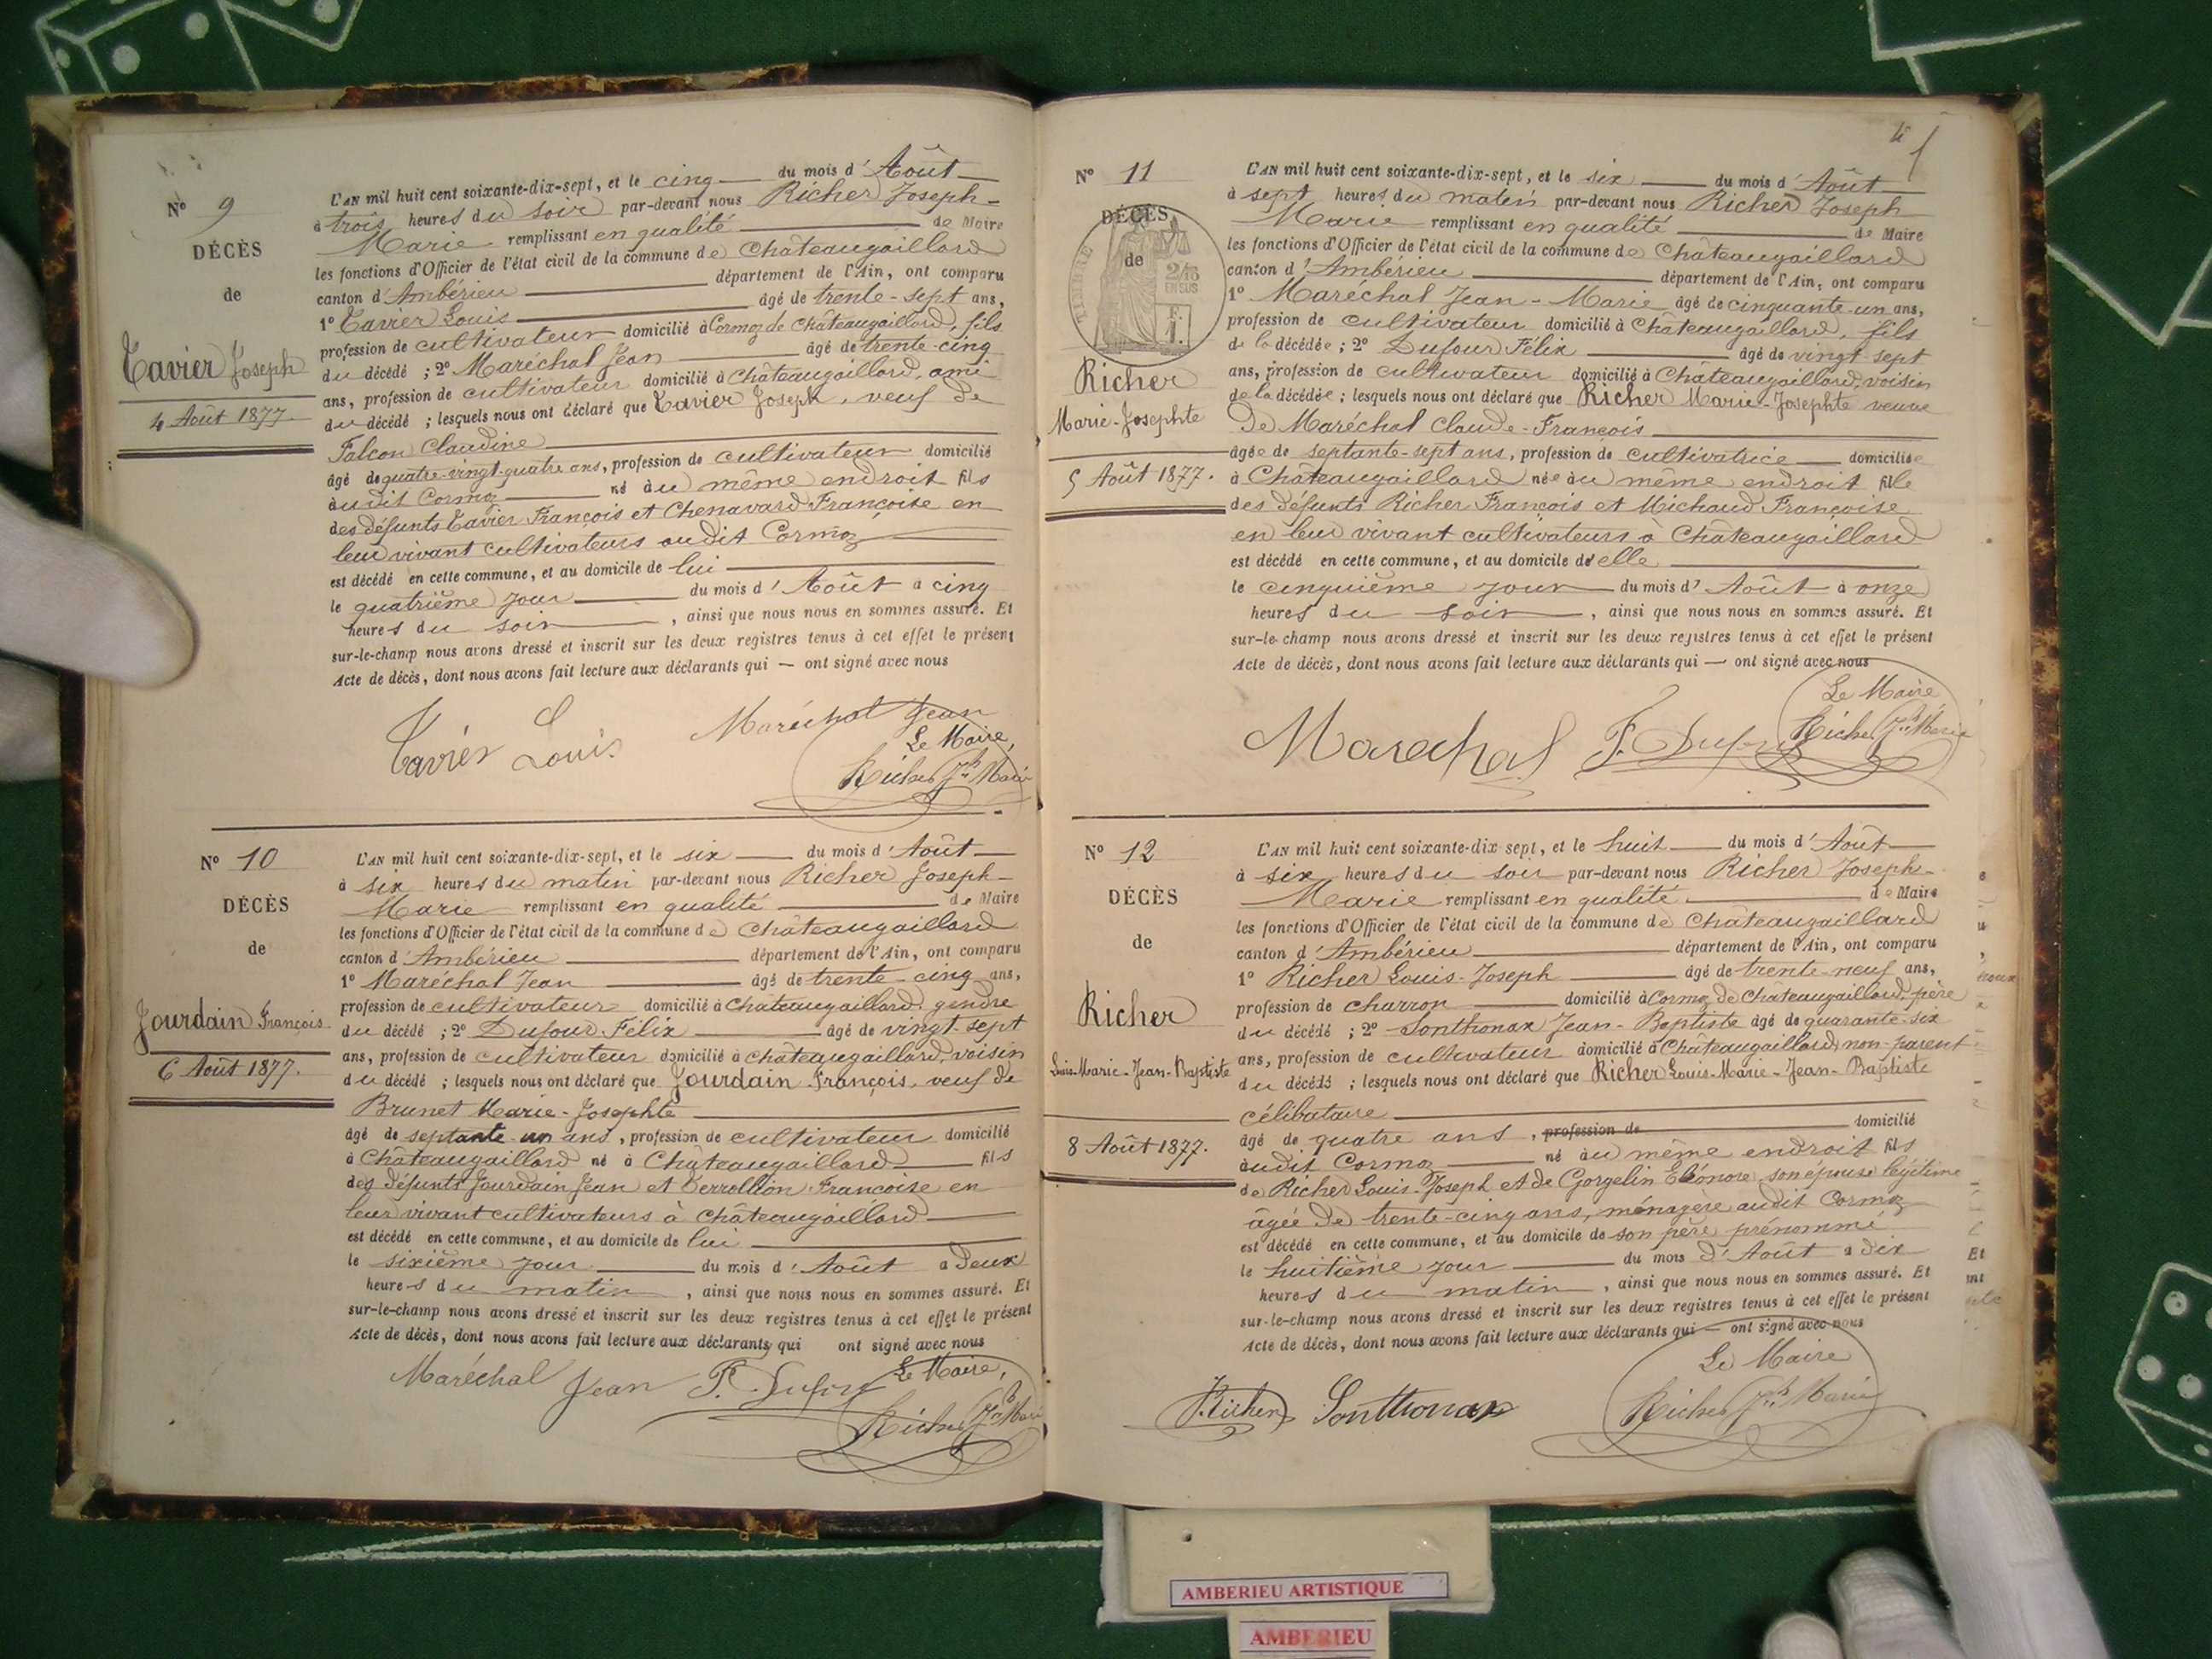 Nº 9
DÉCÈS
de
Tavier Joseph
4 Août 1877.
L'AN mil huit cent soixante-dix-sept, et le cinq du mois d'Août
à trois heures du soir par-devant nous Richer Joseph-
Marie remplissant en qualité de Maire
les fonctions d'Officier de l'état civil de la commune de Châteaugaillard
canton d'Ambérieu département de l'Ain, ont comparu
1º Tavier Louis âgé de trente-sept ans,
profession de cultivateur domicilié à Cormoz de Châteaugaillard, fils
du décédé ; 2º Maréchal Jean âgé de trente-cinq
ans, profession de cultivateur domicilié à Châteaugaillard, ami
du décédé ; lesquels nous ont déclaré que Tavier Joseph, veuf de
Falcon Claudine
âgé de quatre-vingt-quatre ans, profession de cultivateur domicilié
audit Cormoz né au même endroit fils
des défunts Tavier François et Chenavard Françoise en
leur vivant cultivateurs audit Cormoz
est décédé en cette commune, et au domicile de lui
le quatrième jour du mois d'Août à cinq
heures du soir, ainsi que nous nous en sommes assuré. Et
sur-le-champ nous avons dressé et inscrit sur les deux registres tenus à cet effet le présent
Acte de décès, dont nous avons fait lecture aux déclarants qui — ont signé avec nous
Tavier Louis Maréchal Jean
Le Maire,
Richer Jh Marie
Nº 10
DÉCÈS
de
Jourdain François
6 Août 1877.
L'AN mil huit cent soixante-dix-sept, et le six du mois d'Août
à six heures du matin par-devant nous Richer Joseph-
Marie remplissant en qualité de Maire
les fonctions d'Officier de l'état civil de la commune de Châteaugaillard
canton d'Ambérieu département de l'Ain, ont comparu
1º Maréchal Jean âgé de trente-cinq ans,
profession de cultivateur domicilié à Châteaugaillard gendre
du décédé ; 2º Dufour Félix âgé de vingt-sept
ans, profession de cultivateur domicilié à Châteaugaillard, voisin
du décédé ; lesquels nous ont déclaré que Jourdain François, veuf de
Brunet Marie-Josephte
âgé de septante-un ans, profession de cultivateur domicilié
à Châteaugaillard né à Châteaugaillard fils
des défunts Jourdain Jean et Perrollion Françoise en
leur vivant cultivateurs à Châteaugaillard
est décédé en cette commune, et au domicile de lui
le sixième jour du mois d'Août à deux
heures du matin, ainsi que nous nous en sommes assuré. Et
sur-le-champ nous avons dressé et inscrit sur les deux registres tenus à cet effet le présent
Acte de décès, dont nous avons fait lecture aux déclarants qui ont signé avec nous
Maréchal Jean F. Dufour Le Maire,
Richer Jh Marie
Nº 11
DÉCÈS
de
TIMBRE
2/10
EN SUS
Richer
Marie-Josephte
5 Août 1877.
L'AN mil huit cent soixante-dix-sept, et le six du mois d'Août
à sept heures du matin par-devant nous Richer Joseph
Marie remplissant en qualité de Maire
les fonctions d'Officier de l'état civil de la commune de Châteaugaillard
canton d'Ambérieu département de l'Ain, ont comparu
1º Maréchal Jean-Marie âgé de cinquante-un ans,
profession de cultivateur domicilié à Châteaugaillard, fils
de la décédée ; 2º Dufour Félix âgé de vingt-sept
ans, profession de cultivateur domicilié à Châteaugaillard, voisin
de la décédée ; lesquels nous ont déclaré que Richer Marie-Josephte veuve
de Maréchal Claude-François
âgée de septante-sept ans, profession de cultivatrice domiciliée
à Châteaugaillard née au même endroit fille
des défunts Richer François et Michaud Françoise
en leur vivant cultivateurs à Châteaugaillard
est décédé en cette commune, et au domicile d'elle
le cinquième jour du mois d'Août à onze
heures du soir, ainsi que nous nous en sommes assuré. Et
sur-le-champ nous avons dressé et inscrit sur les deux registres tenus à cet effet le présent
Acte de décès, dont nous avons fait lecture aux déclarants qui — ont signé avec nous
Le Maire
Marechal F. Dufour Richer Jh Marie
Nº 12
DÉCÈS
de
Richer
Louis-Marie-Jean-Baptiste
8 Août 1877.
L'AN mil huit cent soixante-dix-sept, et le huit du mois d'Août
à six heures du soir par-devant nous Richer Joseph-
Marie remplissant en qualité de Maire
les fonctions d'Officier de l'état civil de la commune de Châteaugaillard
canton d'Ambérieu département de l'Ain, ont comparu
1º Richer Louis-Joseph âgé de trente-neuf ans,
profession de charron domicilié à Cormoz de Châteaugaillard, père
du décédé ; 2º Sonthonax Jean-Baptiste âgé de quarante-six
ans, profession de cultivateur domicilié à Châteaugaillard, non-parent
du décédé ; lesquels nous ont déclaré que Richer Louis-Marie-Jean-Baptiste
célibataire
âgé de quatre ans, profession de domicilié
audit Cormoz né au même endroit fils
de Richer Louis-Joseph et de Gorgelin Eléonore son épouse légitime
âgée de trente-cinq ans, ménagère audit Cormoz
est décédé en cette commune, et au domicile de son père prénommé
le huitième jour du mois d'Août à dix
heures du matin, ainsi que nous nous en sommes assuré. Et
sur-le-champ nous avons dressé et inscrit sur les deux registres tenus à cet effet le présent
Acte de décès, dont nous avons fait lecture aux déclarants qui — ont signé avec nous
Le Maire
Richer Sonthonax Richer Jh Marie
AMBERIEU ARTISTIQUE
AMBERIEU